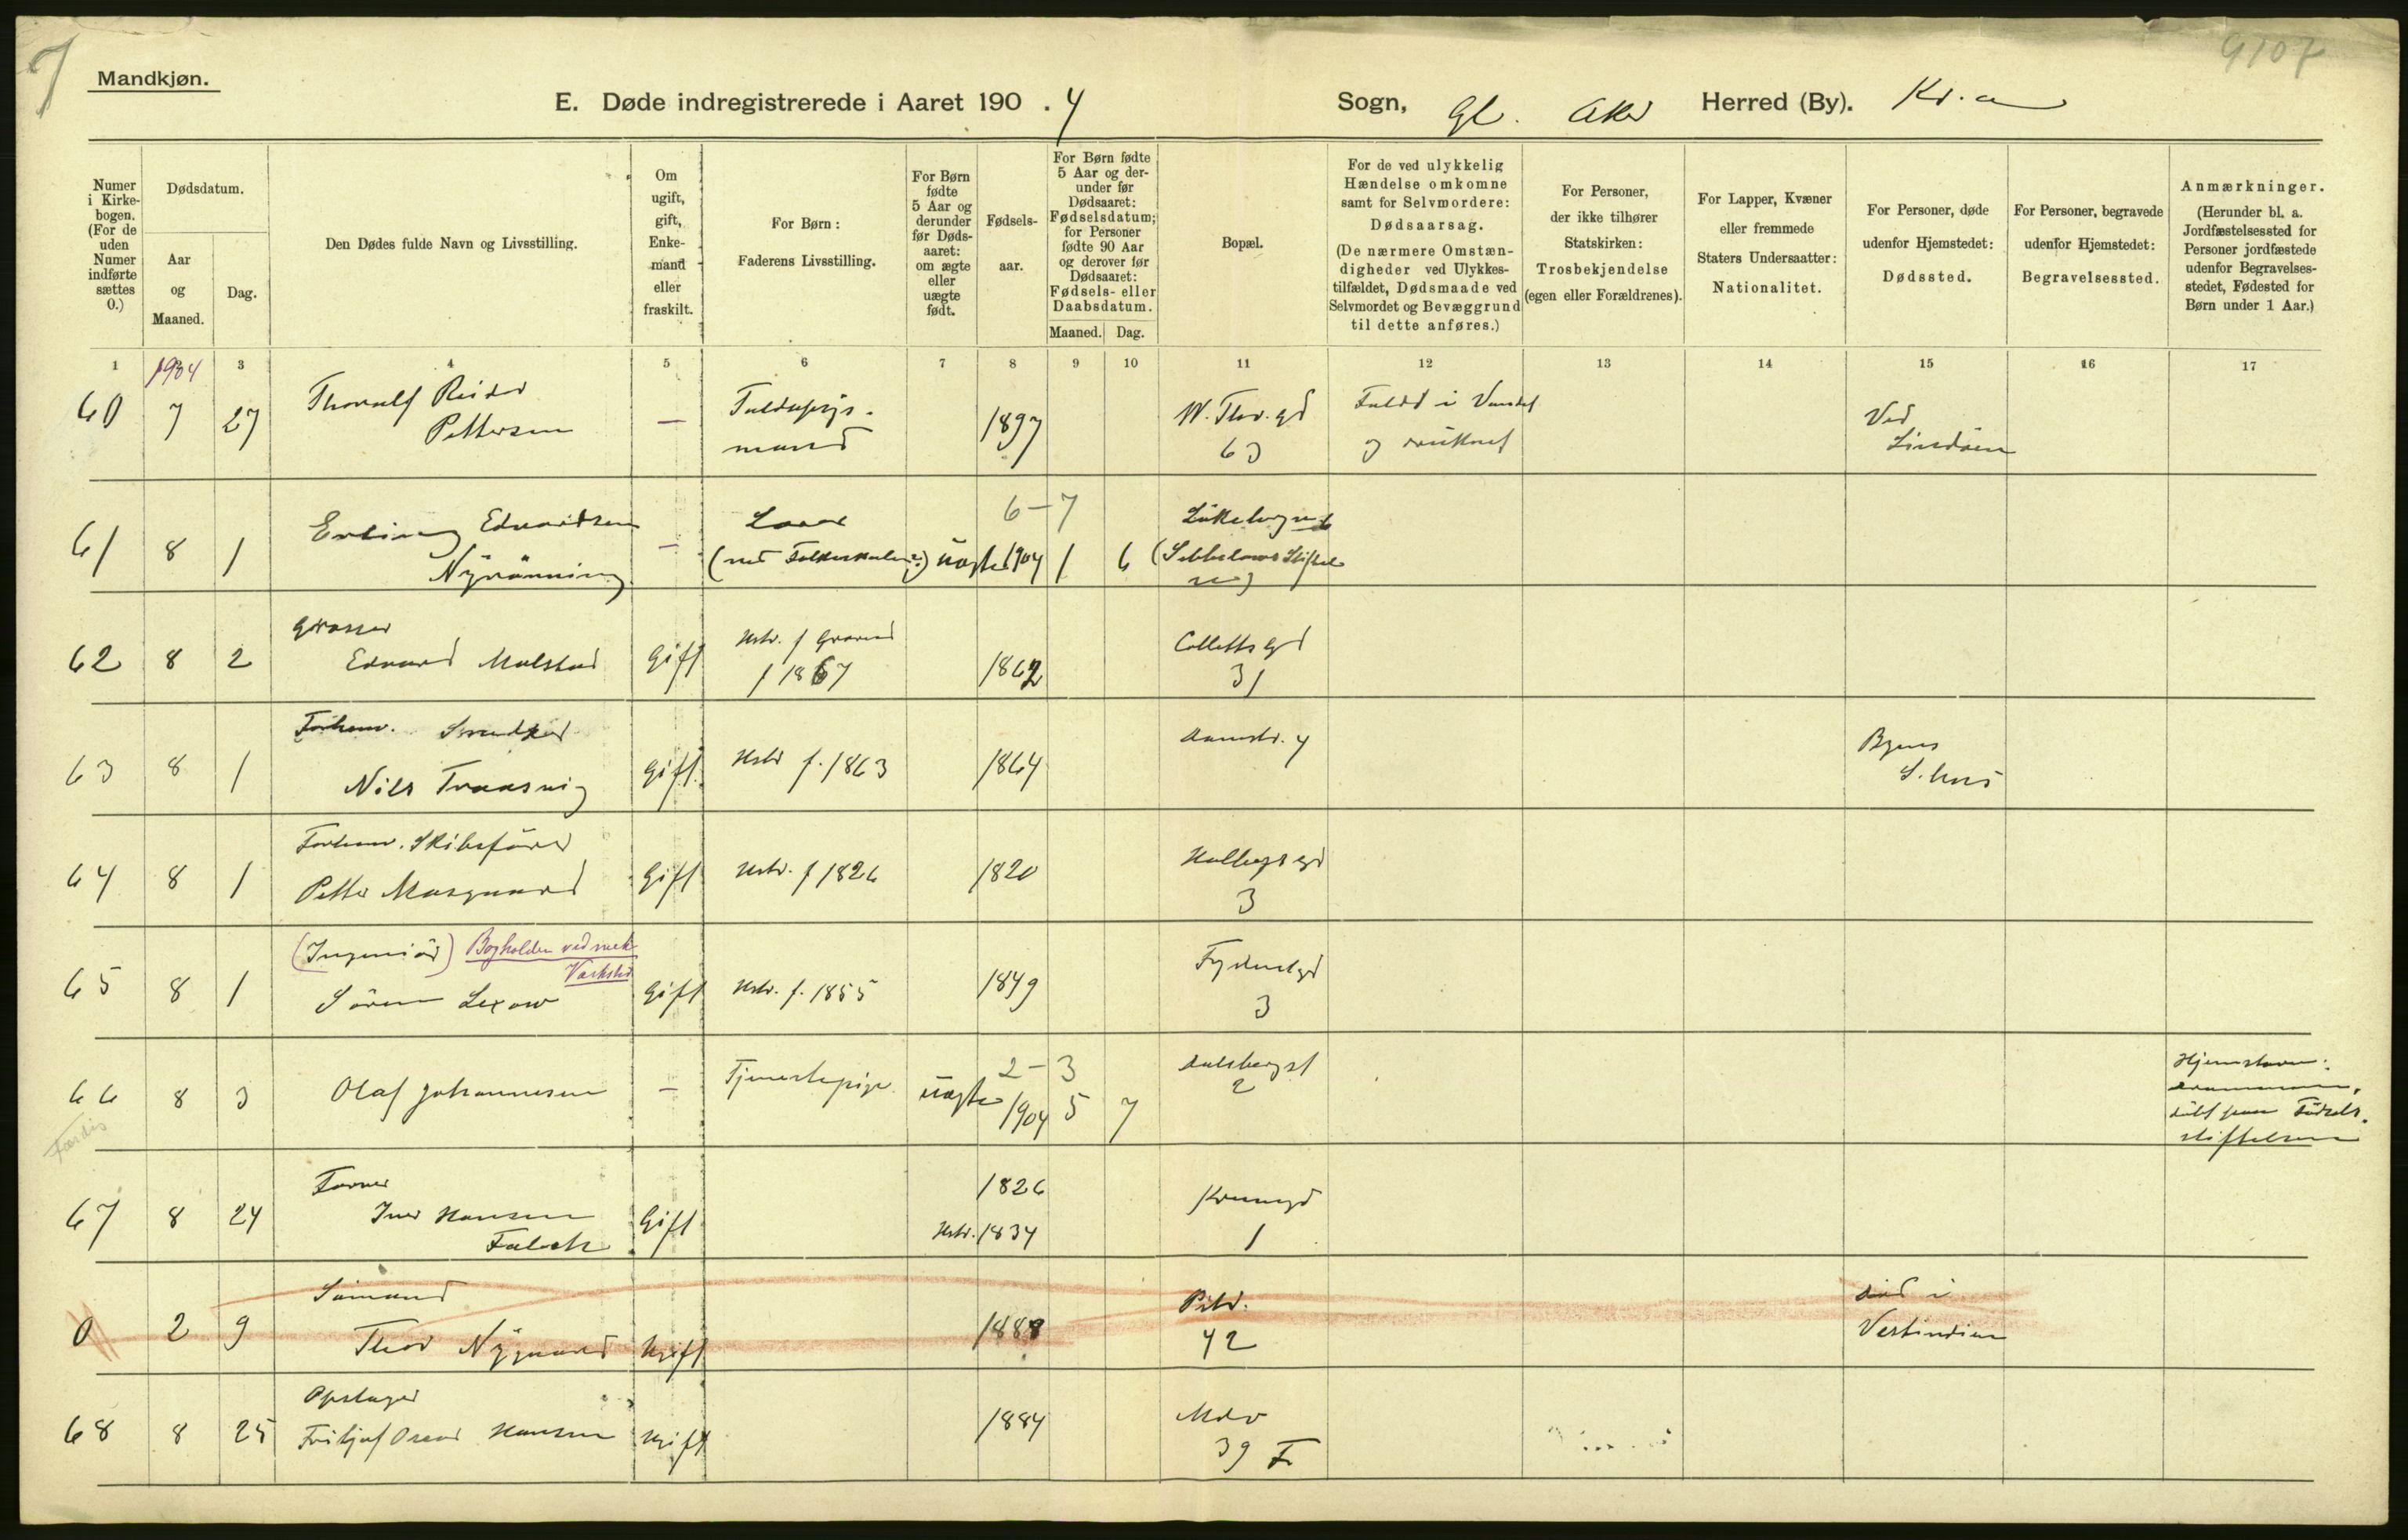 7
9107
Mandkjøn.
E. Døde indregistrerede i Aaret 190 . 4 Sogn, Gl. Aker Herred (By). Kr.a
Numer i Kirkebogen. (For de uden Numer indførte sættes 0.)
Dødsdatum.
Aar og Maaned.
Dag.
Den Dødes fulde Navn og Livsstilling.
Om ugift, gift, Enkemand eller fraskilt.
For Børn:
Faderens Livsstilling.
For Børn fødte 5 Aar og derunder før Dødsaaret: om ægte eller uægte født.
Fødselsaar.
For Børn fødte 5 Aar og derunder før Dødsaaret: Fødselsdatum; for Personer fødte 90 Aar og derover før Dødsaaret: Fødsels- eller Daabsdatum.
Maaned. Dag.
Bopæl.
For de ved ulykkelig Hændelse omkomne samt for Selvmordere: Dødsaarsag.
(De nærmere Omstændigheder ved Ulykkestilfældet, Dødsmaade ved Selvmordet og Bevæggrund til dette anføres.)
For Personer, der ikke tilhører Statskirken: Trosbekjendelse (egen eller Forældrenes).
For Lapper, Kvæner eller fremmede Staters Undersaatter: Nationalitet.
For Personer, døde udenfor Hjemstedet: Dødssted.
For Personer, begravede udenfor Hjemstedet: Begravelsessted.
Anmærkninger.
(Herunder bl. a. Jordfæstelsessted for Personer jordfæstede udenfor Begravelsesstedet, Fødested for Børn under 1 Aar.)
1 1904 3 4 5 6 7 8 9 10 11 12 13 14 15 16 17
60 7 27 Thoralf Reider Pettersen — mand 1897 W. Thr. gd 63 Faldt i Vandet og druknet Ved Lindøen
61 8 1 Erling Edvardsen — 6-7 uægte 1904 1 6
62 8 2 Grosser Edvard Malstad Gift Hstr. f 1867 1862 Colletts gd 31
63 8 1 Forhenv. Nils Traasvig Gift Hstr f. 1863 1864 4 Byens S.hus
64 8 1 Forhenv. Skibsfører Petter Gift Hstr. f 1826 1820 Holbergs gd 3
65 8 1 (Ingeniør) Bogholder ved mek Værksted Søren Lexow Gift Hstr. f. 1855 1849 3
66 8 3 Olaf Johannesen — Tjenestepige 2-3 uægte 1904 5 7 Dalsbergst 2 Hjemstavn: Drammen, født paa Fødselsstiftelsen
Færdig
67 8 24 Iver Hansen Falch Gift 1826 Hstr. 1834 1
0 2 9 Sømand Thor Nygaard Ugift Pstr. 42 død i Vestindien
68 8 25 Opslager Fritjof Oscar Hansen Ugift 1884 39 F